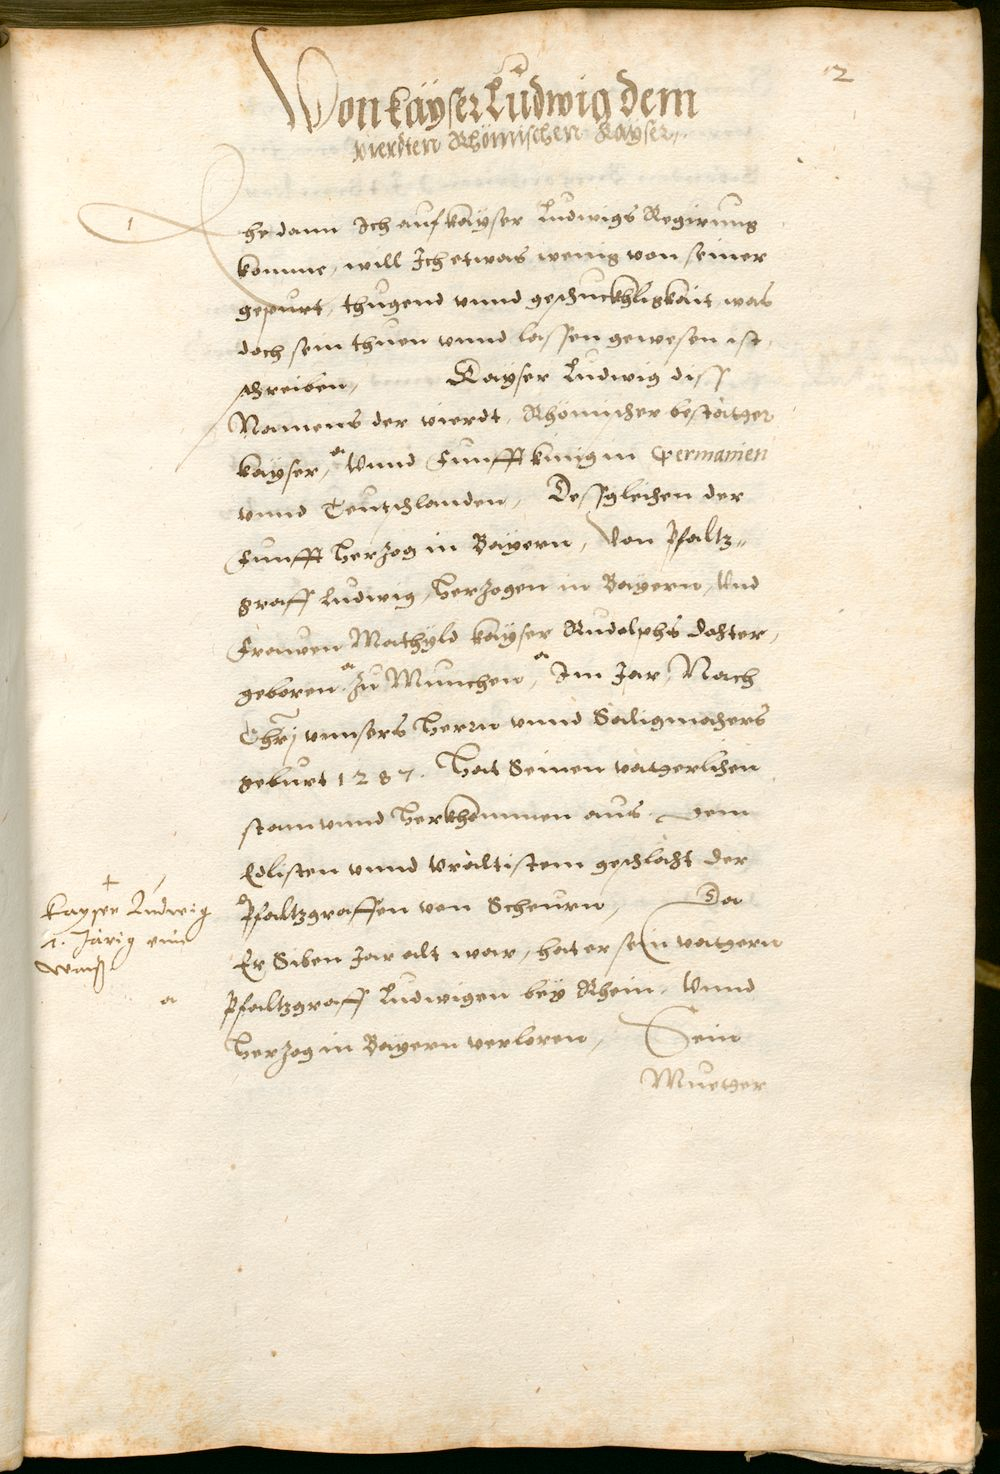 2
Von kayser Ludwig dem
vierdten Rhömischen Kayser,
1
Ehe dann Ich auf kayser Ludwigs Regirung
komme, will Ich etwas wenig von seiner
gepurt, thugend vnnd geschuckhligkait, was
doch sein thuen vnnd lassen gewesen ist,
schreiben, Kayser Ludwig diss
Namens der vierdt, Rhömischer bestätger
kayser, Vnnd Funfft kunig in Germanien
vnnd Teutschlanden, Dessgleichen der
Funfft Herzog in Bayern, Von Pfaltz-
graff Ludwig, Herzogen in Bayern, Vnd
Frawen Mathyld kayser Rudolphs dochter,
geboren a zu Munchen, a Im Jar, Nach
Chri vnnsers Herrn vnnd Säligmachers
geburt 1287. Hat Seinen vätgerlichen
stam vnnd Herkhommen aus dem
Edlisten vnnd Vraltistem geschlächt der
Pfaltzgraffen von Scheurn, Da
Er Siben Jar alt war, hat er sein vatgern
Pfaltzgraff Ludwigen bey Rhein, Vnnd
Herzog in Bayern verloren, Sein
Muetger
+
kayser Ludwig
Järig ein
waiß
a